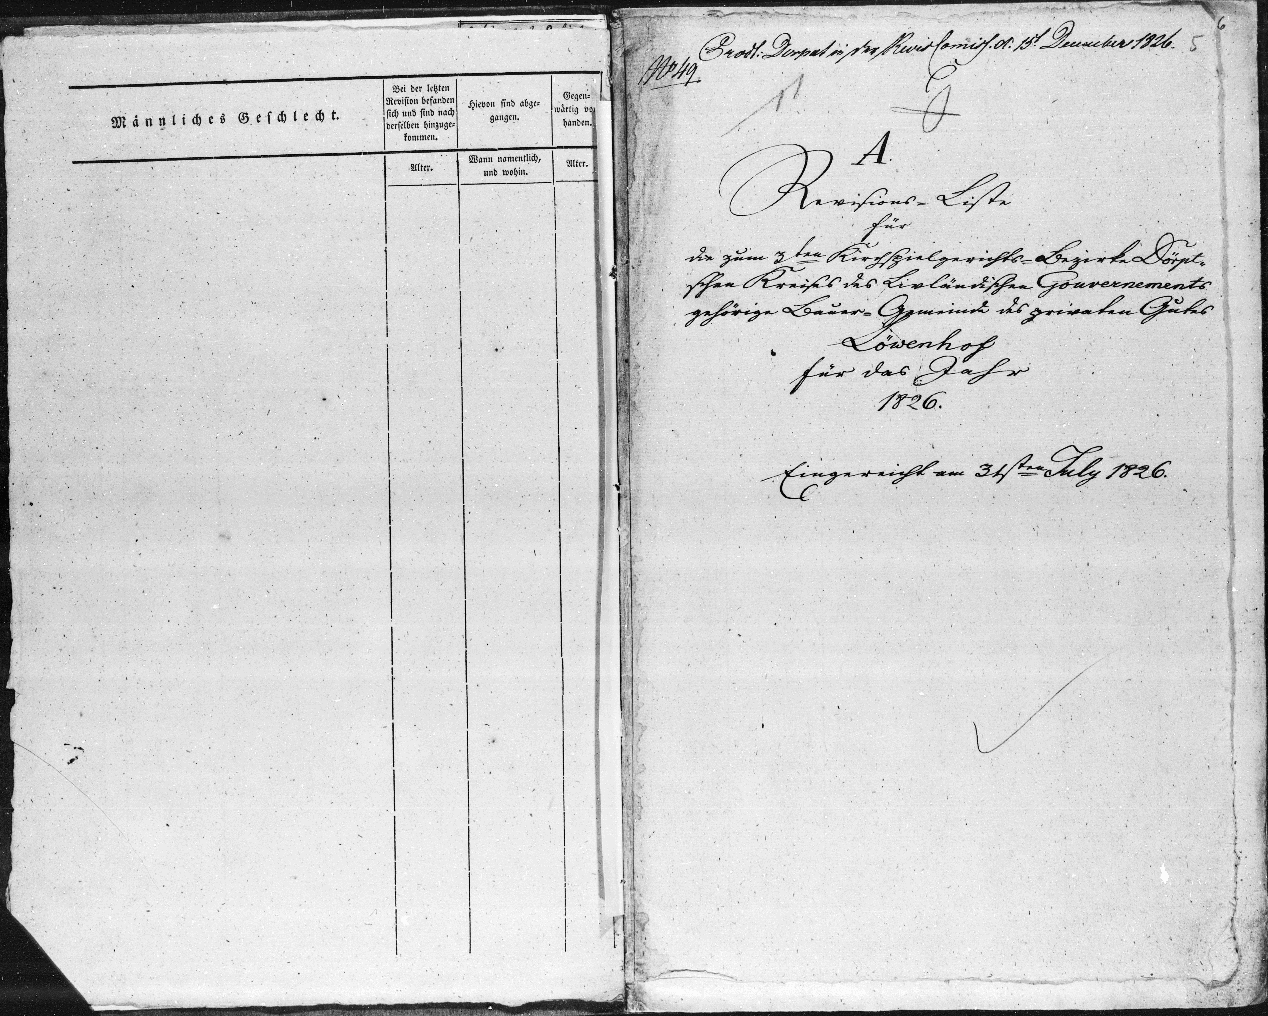 Männliches Geschlecht.
Bei der letzten
Revision befanden
sich und sind nach
derselben hinzuge-
kommen.
Hievon sind abge-
gangen.
Gegen-
wärtig vo
handen.
Alter.
Wann namentlich,
und wohin.
Alter.
6
5
Prodt: Dorpat in der Revis Comiss. d. 15t December 1826.
No 49.
A.
Revisions-Liste
für
die zum 3ten Kirchspielgerichts-Bezirke Dörpt-
schen Kreises des Livländischen Gouvernements
gehörige Bauer-Gemeinde des privaten Gutes
Löwenhof
für das Jahr
1826.
Eingereicht am 31sten July 1826.